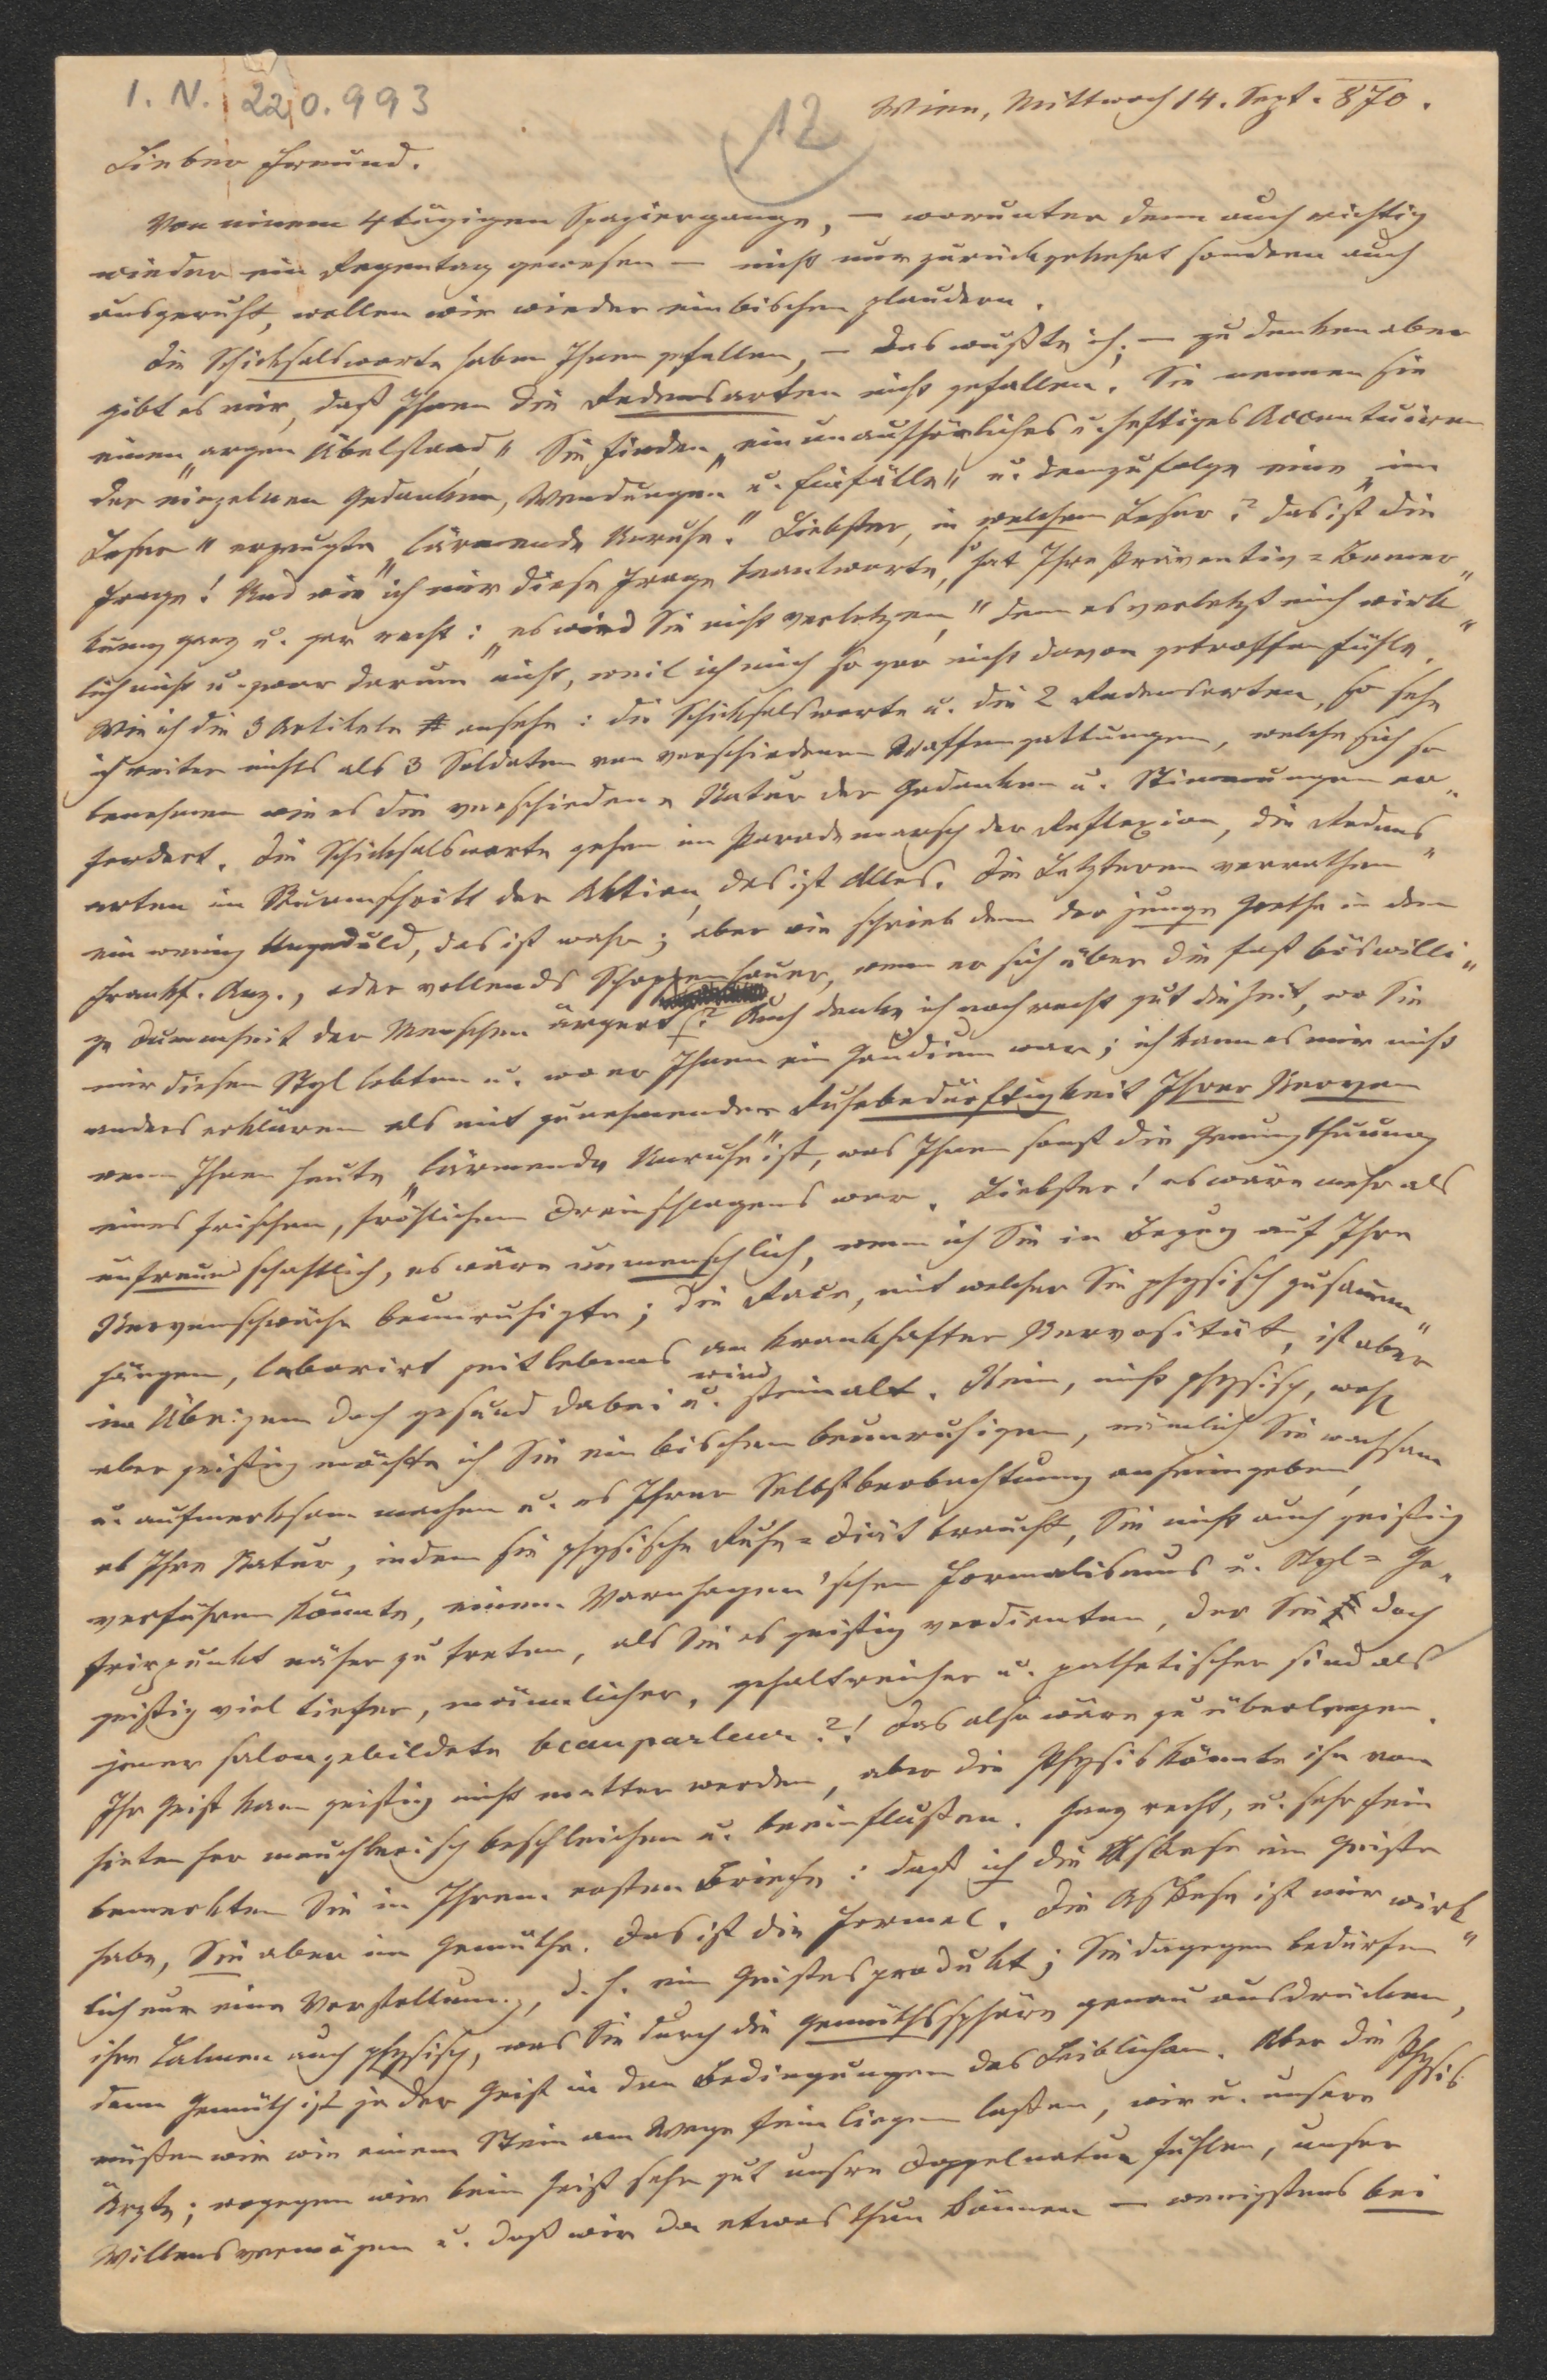 I. N. 220.993
12
Wien, Mittwoch 14. Sept. 870.
Lieber Freund.
Von einem 4tägigen Spaziergange, — worunter denn auch richtig
wieder ein Regentag gewesen — nicht nur zurückgekehrt sondern auch
ausgeruht, wollen wir wieder ein bischen plaudern.
Die Schicksalsworte haben Ihnen gefallen, — das wußte ich; — zu denken aber
gibt es mir, daß Ihnen die Redensarten nicht gefallen. Sie nennen sie
einen „argen Übelstand" Sie finden „ein unaufhörliches u. heftiges Accentuiren
der einzelnen Gedanken, Wendungen u. Einfälle" u. demzufolge eine „im
Leser" erzeugte „lärmende Unruhe." Liebster, in welchem Leser? das ist die
Frage! Und wie ich mir diese Frage beantworte, so hat Ihre Präventiv=Bemer„
kung ganz u. gar recht: „es wird Sie nicht verletzen," denn es verletzt mich wirk„
lich nicht u. zwar darum nicht, weil ich mich so gar nicht davon getroffen fühle.
Wie ich die 3 Artikeln ansehe: die Schicksalsworte u. die 2 Redensarten, so sehe
ich weiter nichts als 3 Soldaten von verschiedenen Waffengattungen, welche sich so
benehmen wie es die verschiedene Natur der Gedanken u. Stimmungen er„
fordert. Die Schicksalsworte gehen im Parademarsch der Reflexion, die Redens„
arten im Sturmschritt der Aktion, das ist Alles. Die Letzteren verrathen
ein wenig Ungeduld, das ist wahr; aber wie schrieb denn der junge Goethe in den
Frankf. Anz., oder vollends Schoppenhauer, wenn er sich über die fast böswilli„
ge Dummheit der Menschen ärgert? Auch denke ich noch recht gut die Zeit, wo Sie
mir diesen Styl lobten u. wo er Ihnen ein Gaudium war; ich kann es mir nicht
anders erklären als mit zunehmender Ruhebedürftigkeit Ihrer Nerven
wenn Ihnen heute „lärmende Unruhe" ist, was Ihnen sonst die Genungthuung
eines frischen, fröhlichen Dreinschlagens war. Liebster! es wäre mehr als
unfreundschaftlich, es wäre unmenschlich, wenn ich Sie in Bezug auf Ihre
Nervenschwäche beunruhigte; die Race, mit welcher Sie physisch zusammen„
hängen, laborirt zeitlebens an krankhafter Nervosität, ist aber
im Übrigen doch gesund dabei u. wird steinalt. Nein, nicht physisch, wohl
aber geistig möchte ich Sie ein bischen beunruhigen, nämlich Sie wachsam
u. aufmerksam machen u. es Ihrer Selbstbeobachtung anheimgeben,
ob Ihre Natur, indem sie physische Ruhe=Diät braucht, Sie nicht auch geistig
verführen könnte, einem Varnhagen'schen Formalismus u. Styl=Ge„
frierpunkt näher zu treten, als Sie es geistig verdienten, der Sie doch
geistig viel tiefer, männlicher, gehaltreicher u. pathetischer sind als
jener salongebildete beauparleur?! Das also wäre zu überlegen.
Ihr Geist kann geistig nicht matter werden, aber die Physis könnte ihn von
hinten her meuchlerisch beschleichen u. beeinflußen. Ganz recht, u. sehr fein
bemerkten Sie in Ihrem ersten Briefe: daß ich die Askese im Geiste
habe, Sie aber im Gemüthe. Das ist die Formel. Die Askese ist mir wirk„
lich nur eine Vorstellung, d. h. ein Geistesprodukt; Sie dagegen bedürfen
ihre Calmen auch physisch, was Sie durch die Gemüthssphäre genau ausdrücken,
denn Gemüth ist ja der Geist in den Bedingungen des Leiblichen. Aber die Physis
müßen wir wie einen Stein am Wege fein liegen laßen, wir u. unsere
Ärzte; wogegen wir beim Geist sehr gut unsre Doppelnatur fühlen, unser
Willensvermögen u. daß wir da etwas thun können — wenigstens bei